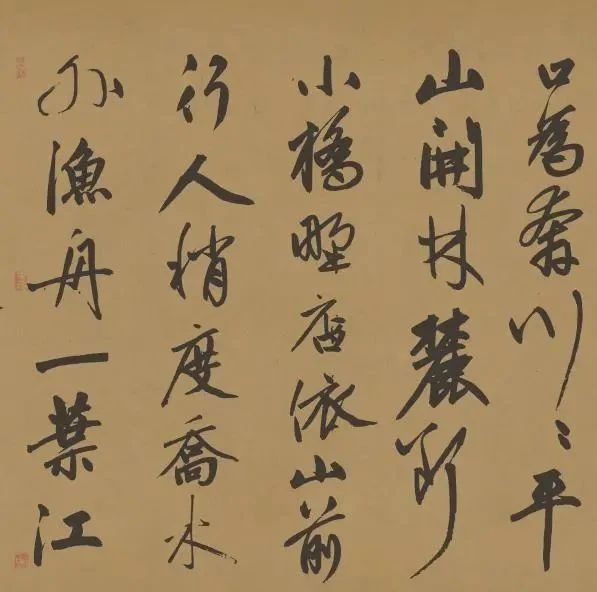 口為奔川〻平
山開林麓斷
小橋野店依山前
行人稍度喬木
外漁舟一葉江